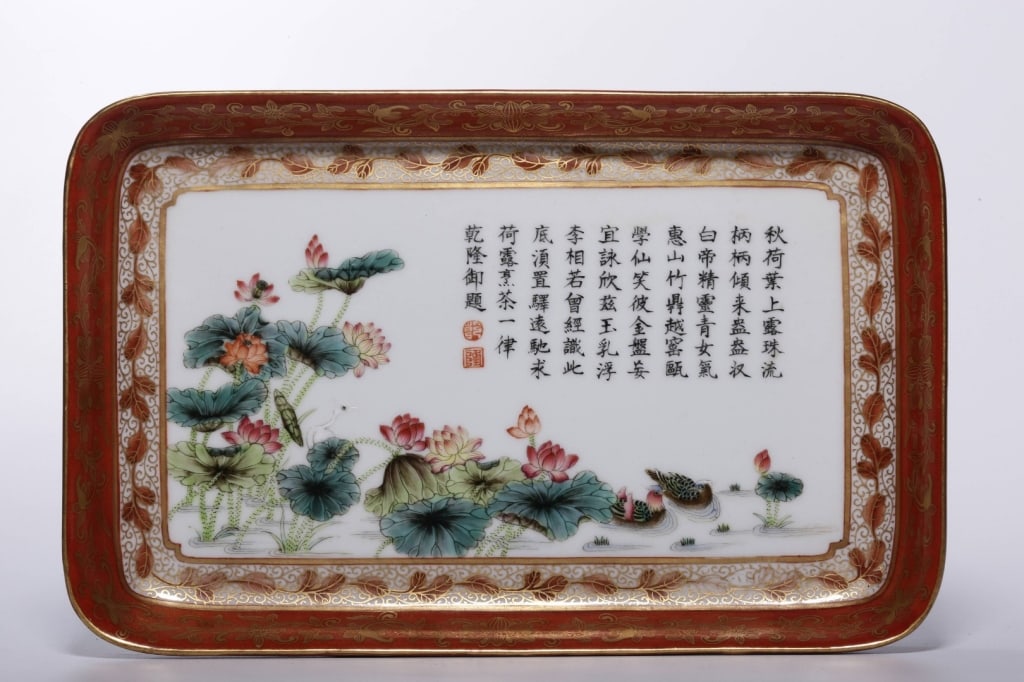 秋荷葉上露珠流
柄柄傾来盎盎収
白帝精靈青女氣
惠山竹鼎越窑甌
學仙笑彼金盤妄
宜詠欣兹玉乳浮
李相若曾經識此
底湏置驛遠馳求
荷露烹茶一律
乾隆御題
乾
隆